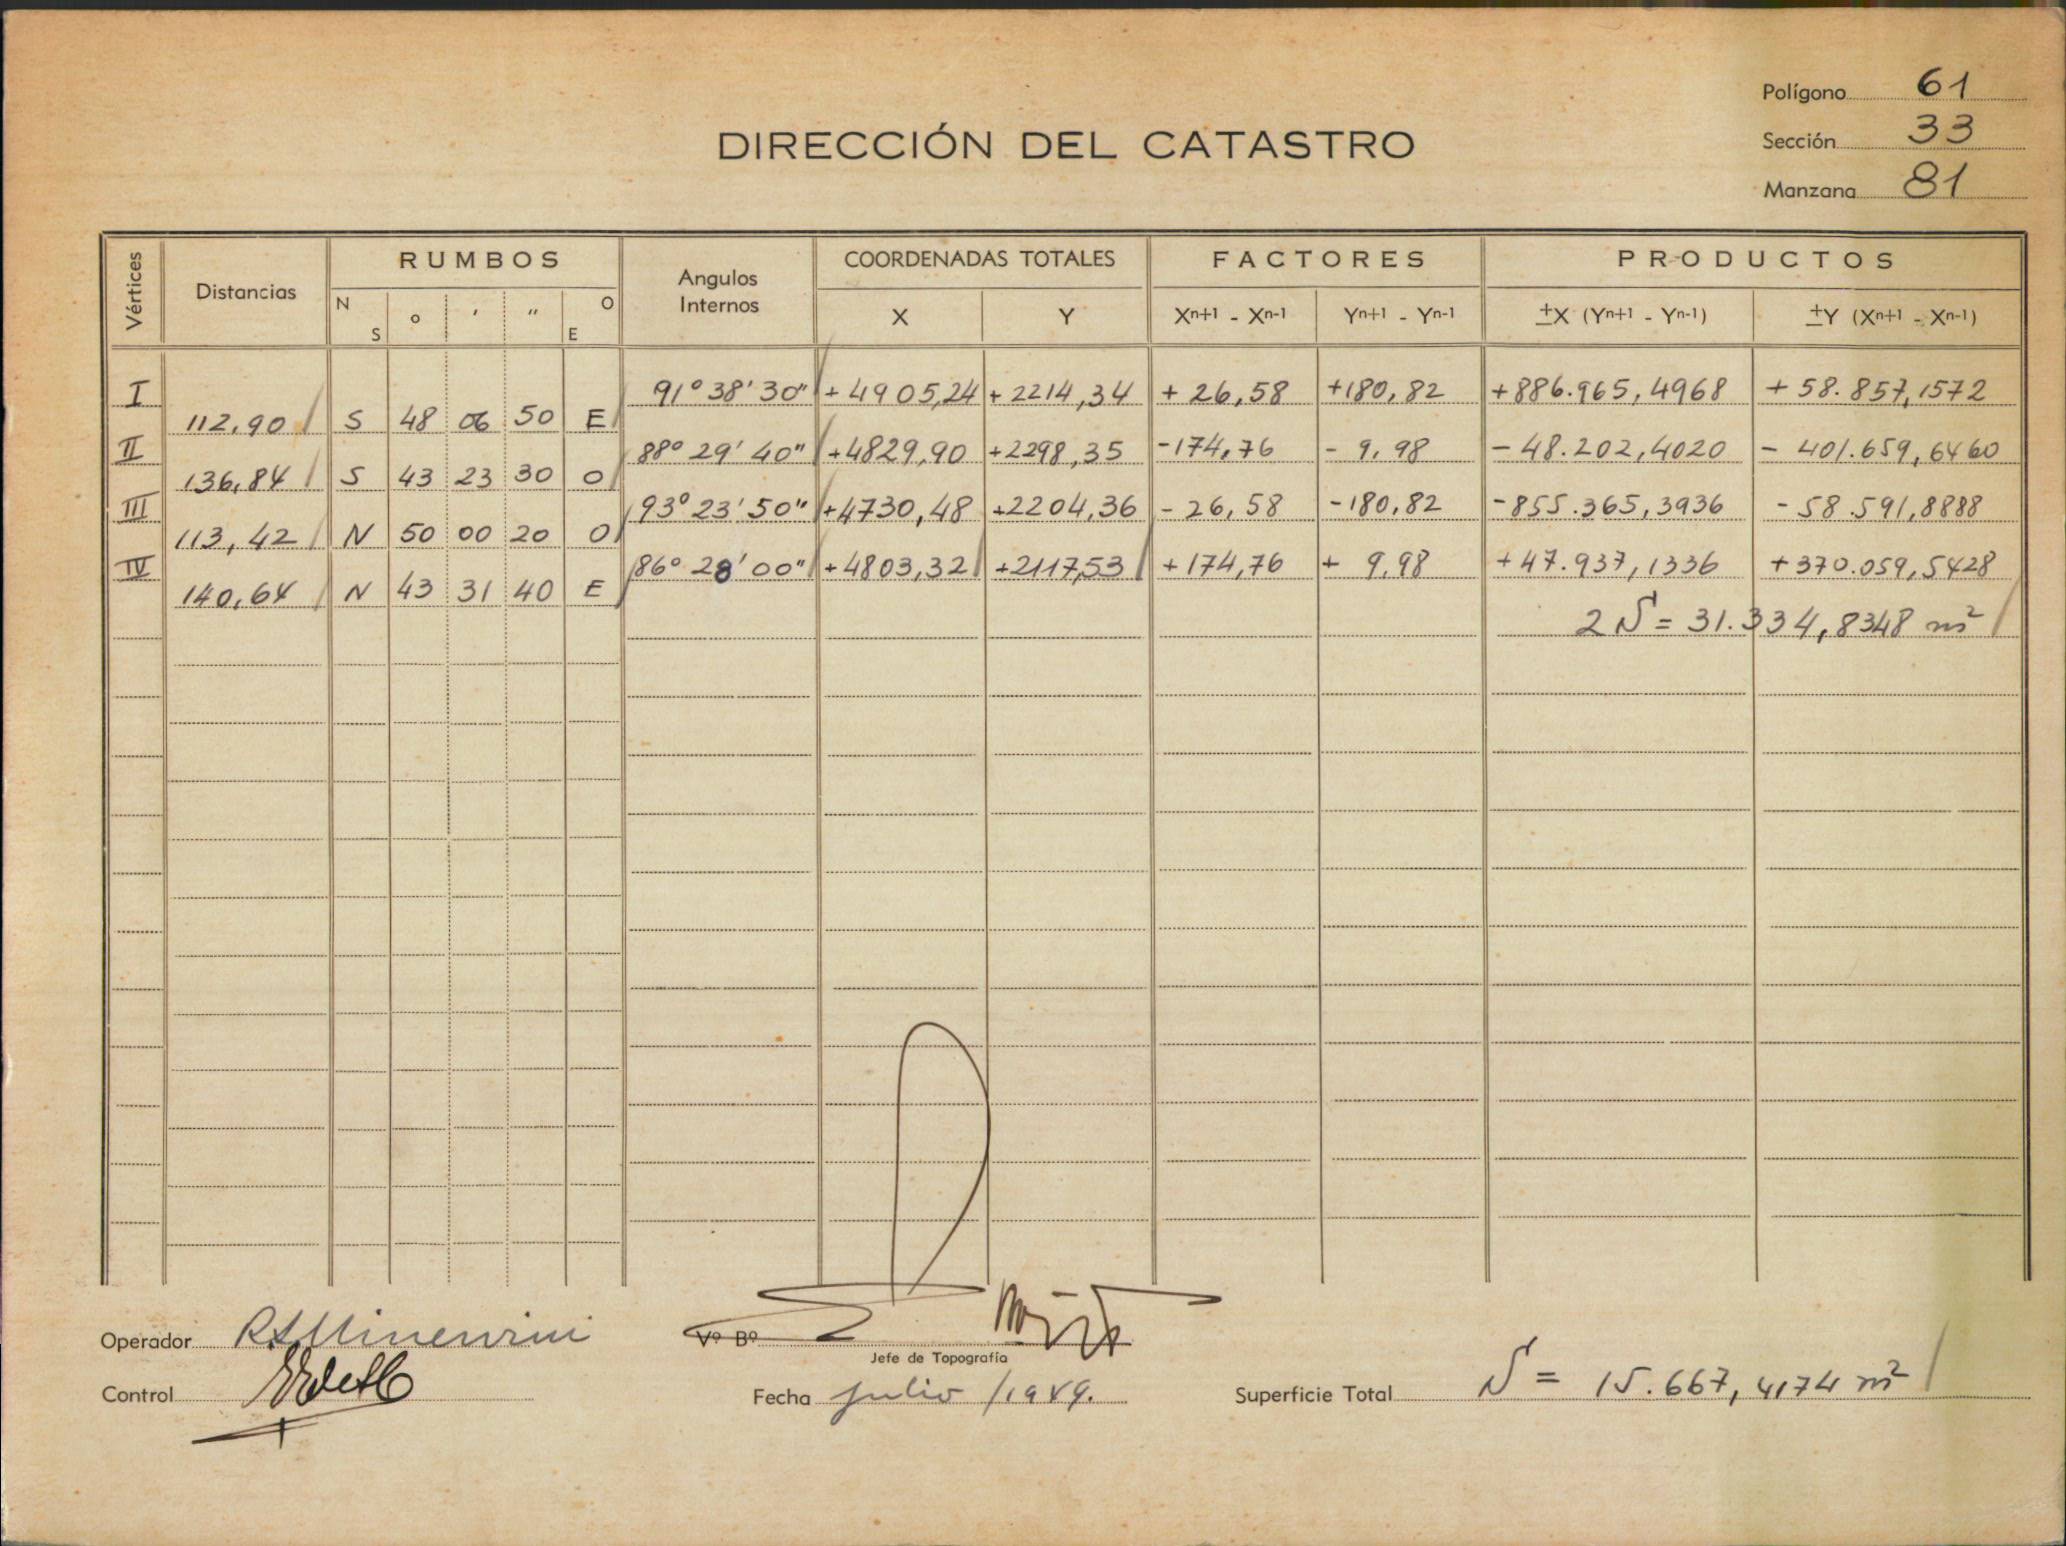 Polígono 61
DIRECCIÓN DEL CATASTRO
Sección 33
Manzana 81
Vértices Distancias RUMBOS Angulos Internos COORDENADAS TOTALES FACTORES PRODUCTOS
N S o ' " O E X Y Xn+1 - Xn-1 Yn+1 - Yn-1 ±X (Yn+1 - Yn-1) ±Y (Xn+1 - Xn-1)
I 91° 38' 30" + 4905,24 + 2214,34 + 26,58 +180,82 +886.965,4968 + 58.857,1572
112,90 S 48 06 50 E
II 88° 29' 40" +4829,90 +2298,35 -174,76 - 9,98 - 48.202,4020 - 401.659,6460
136,84 S 43 23 30 O
III 93° 23' 50" +4730,48 +2204,36 - 26,58 -180,82 -855.365,3936 - 58.591,8888
113,42 N 50 00 20 O
IV 86° 28' 00" +4803,32 +2117,53 + 174,76 + 9,98 +47.937,1336 +370.059,5428
140,64 N 43 31 40 E
2 S = 31.334,8348 m²
Operador R.L. Minervini
Vº Bº
Jefe de Topografía
Control
Fecha julio /1949.
Superficie Total S = 15.667,4174 m²